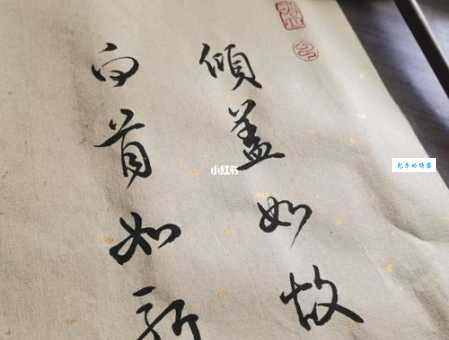 傾盖如故
白首如新
小红书